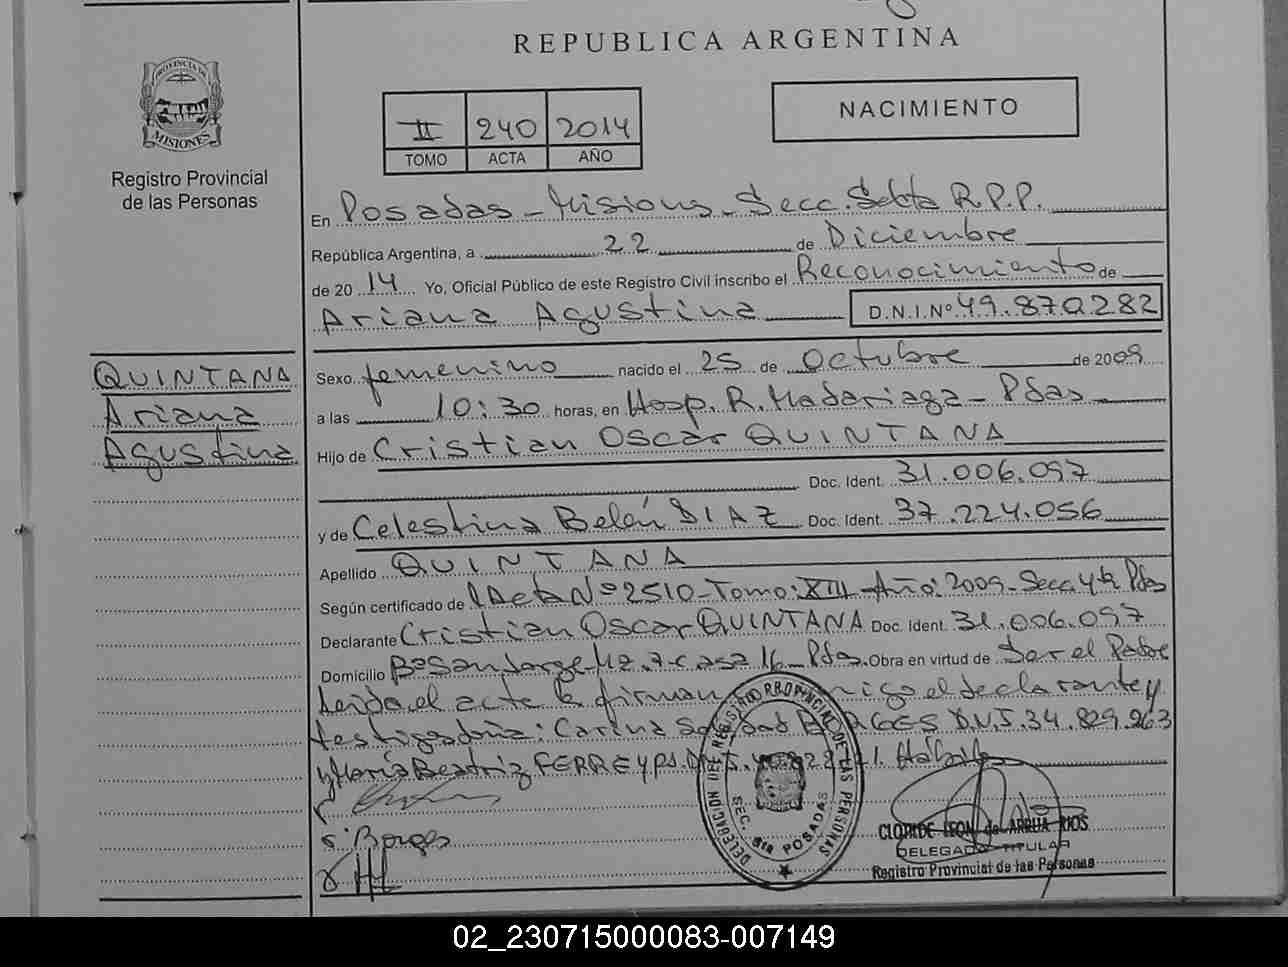 REPUBLICA ARGENTINA
PROVINCIA DE
MISIONES
Registro Provincial
de las Personas
NACIMIENTO
II 240 2014
TOMO ACTA AÑO
En Posadas - Misiones - Secc. Sexta R.P.P.
República Argentina, a 22 de Diciembre
de 2014 Yo, Oficial Público de este Registro Civil inscribo el Reconocimiento de
Ariana Agustina D.N.I.Nº 49.870.282
QUINTANA
Ariana
Agustina
Sexo femenino nacido el 25 de Octubre de 2009
a las 10:30 horas, en Hosp. R. Madariaga - Pdas
Hijo de Cristian Oscar QUINTANA
Doc. Ident. 31.006.097
y de Celestina Belén DIAZ Doc. Ident. 37.224.056
Apellido QUINTANA
Según certificado de Acta Nº 2510 - Tomo: XIII - Año: 2009 - Secc. 4ta Pdas
Declarante Cristian Oscar QUINTANA Doc. Ident. 31.006.097
Domicilio Bº San Jorge - Mz. 7 - casa 16 - Pdas. Obra en virtud de Ser el Padre
Leida el acta la firman el declarante y
testigos : Carina BORGES D.N.I. 34.829.263
y María Beatriz FERREYRA
Borges
DELEGACION DEL REGISTRO PROVINCIAL DE LAS PERSONAS
SEC. 6ta POSADAS
CLOTILDE LEON de ARRUA RIOS
DELEGADO TITULAR
Registro Provincial de las Personas
02_230715000083-007149